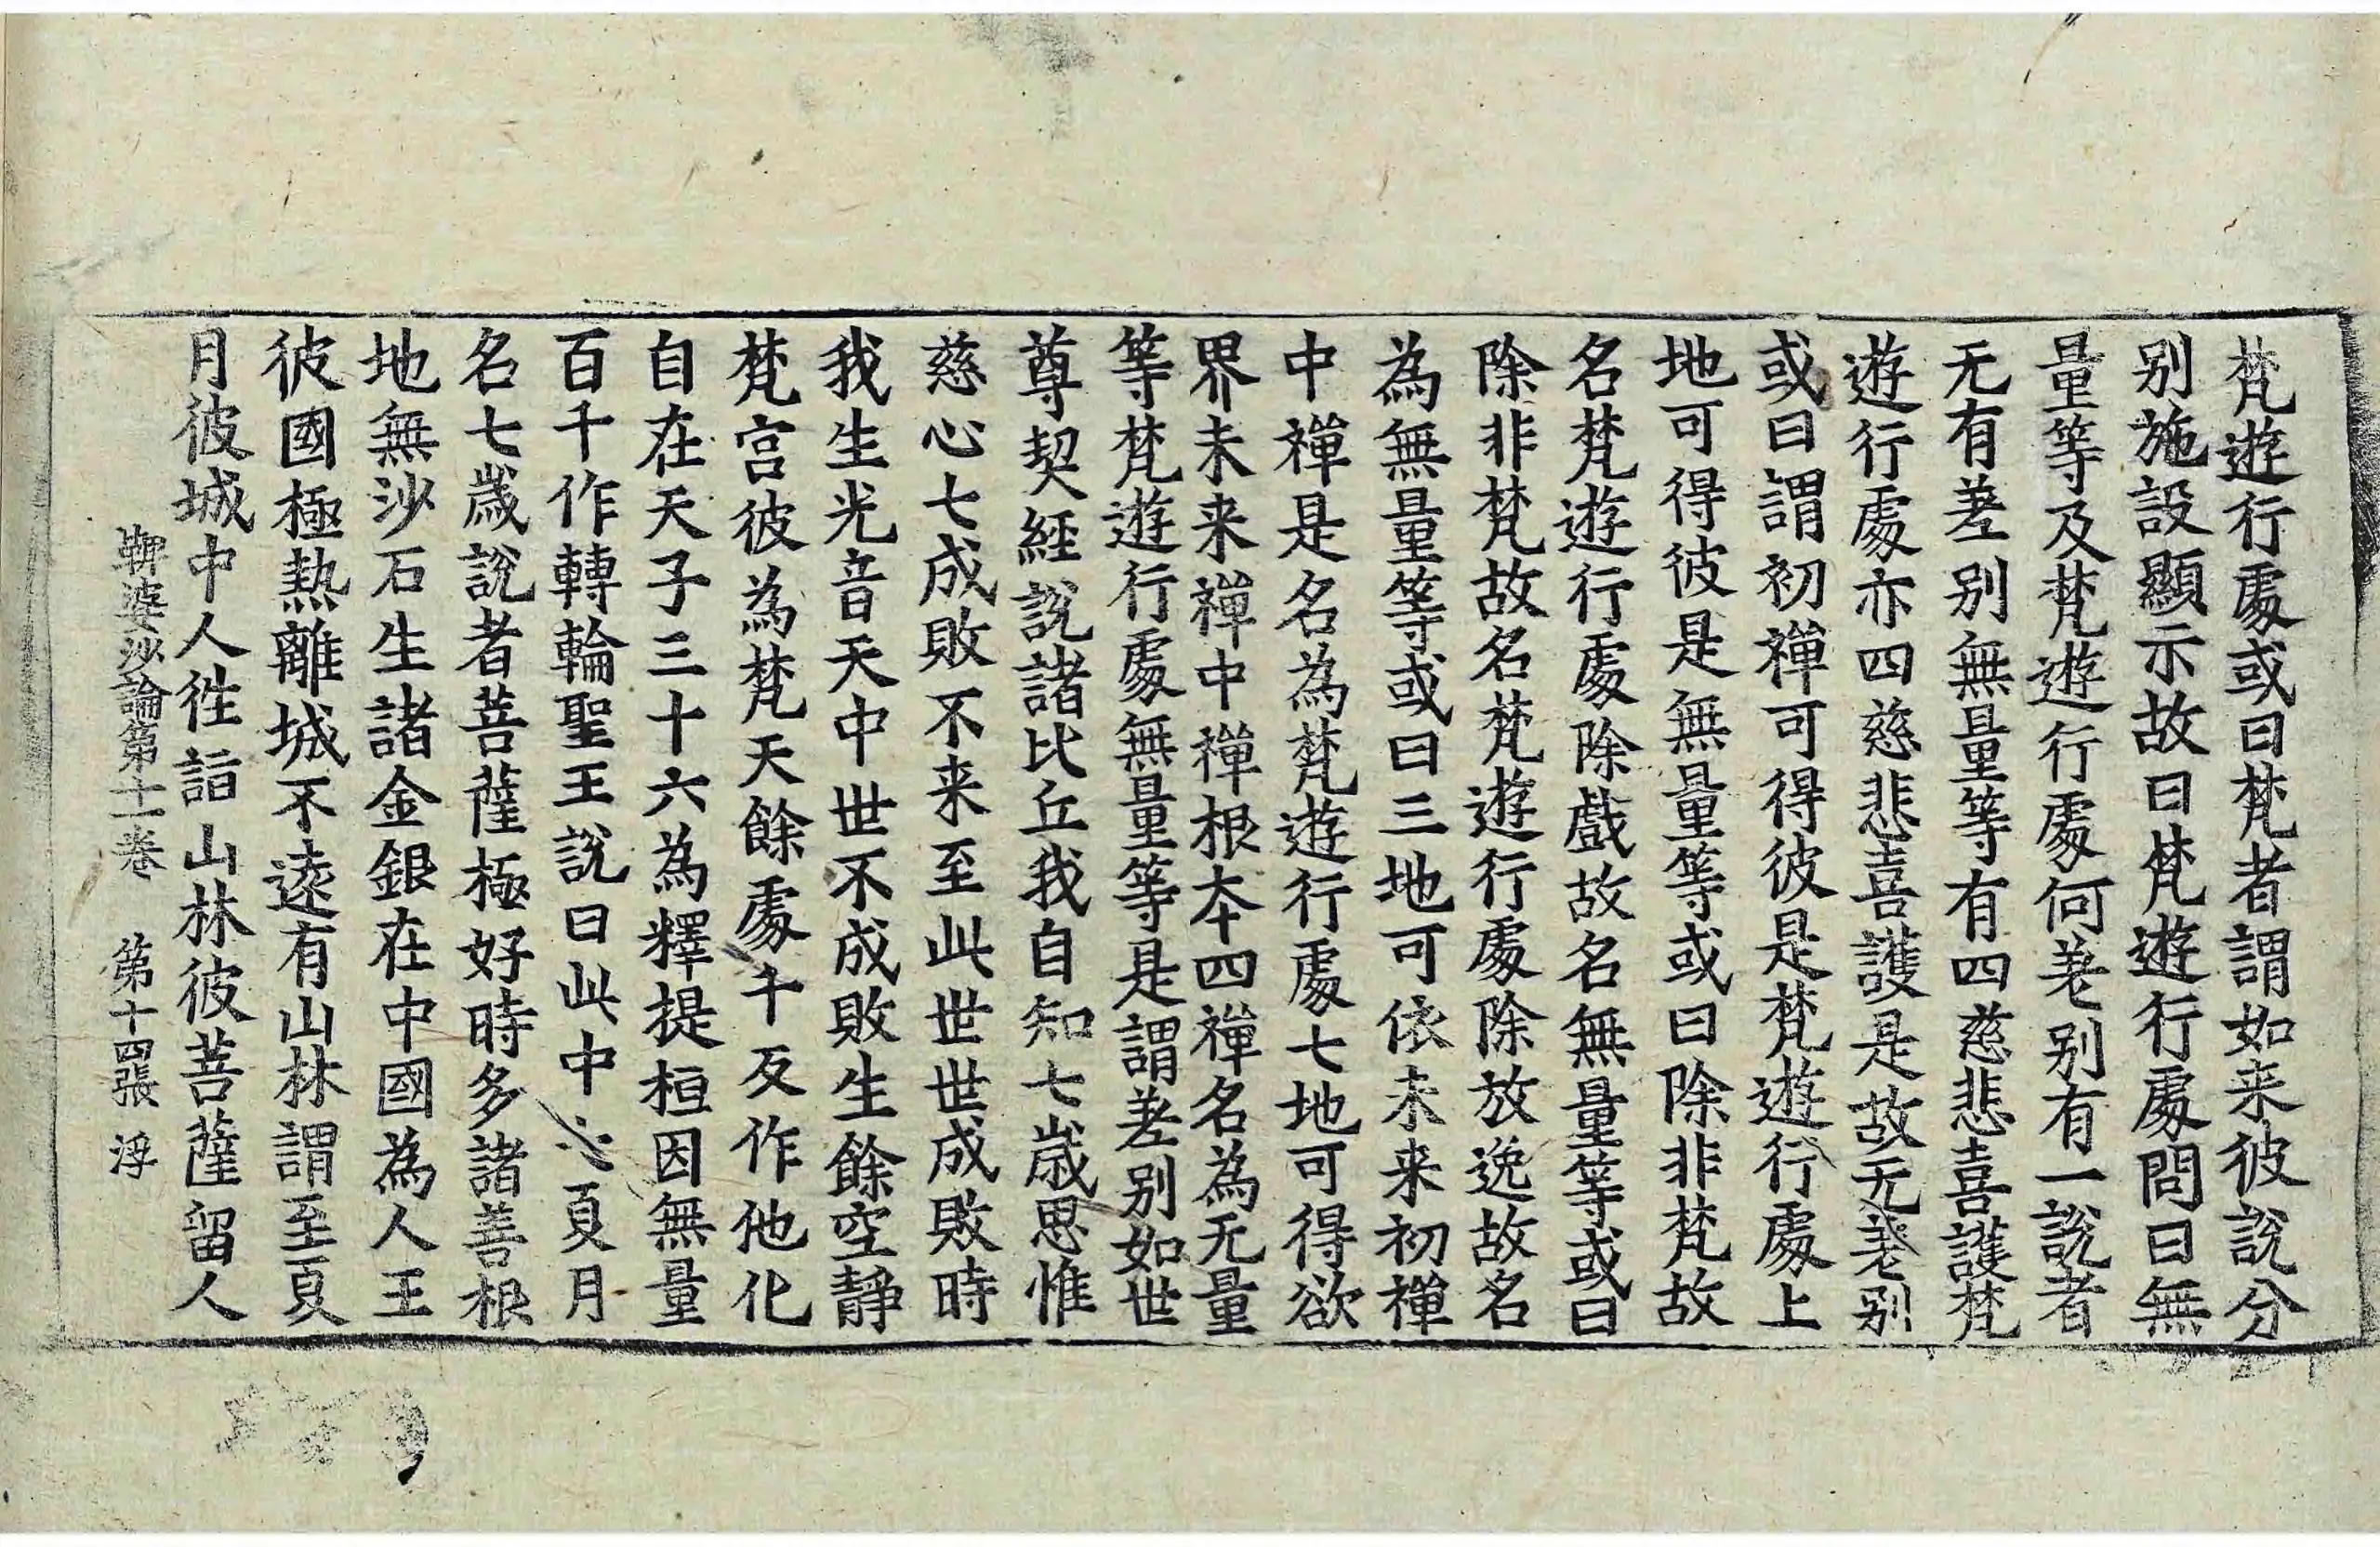 梵遊行處或曰梵者謂如来彼說分
别施設顯示故曰梵遊行處問曰無
量等及梵遊行處何差别有一說者
无有差别無量等有四慈悲喜護梵
遊行處亦四慈悲喜護是故无差别
或曰謂初禪可得彼是梵遊行處上
地可得彼是無量等或曰除非梵故
名梵遊行處除戲故名無量等或曰
除非梵故名梵遊行處除放逸故名
為無量等或曰三地可依未来初禪
中禪是名為梵遊行處七地可得欲
界未来禪中禪根夲四禪名為无量
等梵遊行處無量等是謂差别如世
尊契經說諸比丘我自知七歳思惟
慈心七成敗不来至此世世成敗時
我生光音天中世不成敗生餘空靜
梵宮彼為梵天餘處千反作他化
自在天子三十六為釋提桓因無量
百千作轉輪聖王說曰此中夏月
名七歲說者菩薩極好時多諸善根
地無沙石生諸金銀在中國為人王
彼國極熱離城不遠有山林謂至夏
月彼城中人徃詣山林彼菩薩留人
鞞婆沙論第十一卷　第十四張　浮